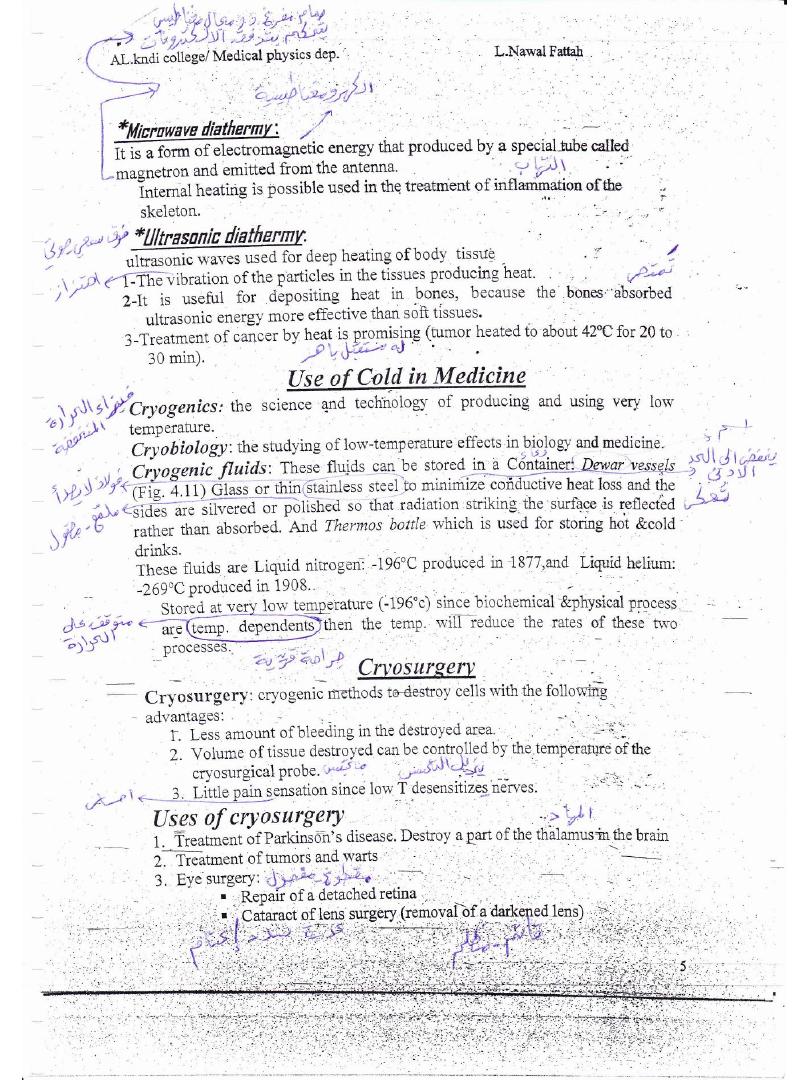 صمام مفرغ ذو مجال مغناطيسي
يتحكم بتدفق الالكترونات
AL.kndi college/ Medical physics dep. L.Nawal Fattah
الكهرومغناطيسية
*Microwave diathermy:
It is a form of electromagnetic energy that produced by a special tube called
magnetron and emitted from the antenna.
التهاب
Internal heating is possible used in the treatment of inflammation of the
skeleton.
فوق سمعي صوتي
*Ultrasonic diathermy:
ultrasonic waves used for deep heating of body tissue
اهتزاز
1-The vibration of the particles in the tissues producing heat.
تمتص
2-It is useful for depositing heat in bones, because the bones absorbed
ultrasonic energy more effective than soft tissues.
3-Treatment of cancer by heat is promising (tumor heated to about 42°C for 20 to
30 min).
له مستقبل باهر
Use of Cold in Medicine
فيزياء الحرارة
المنخفضة
Cryogenics: the science and technology of producing and using very low
temperature.
Cryobiology: the studying of low-temperature effects in biology and medicine.
وعاء
يخفض الى الحد
الادنى
Cryogenic fluids: These fluids can be stored in a Container: Dewar vessels
فولاذ لا يصدأ
(Fig. 4.11) Glass or thin stainless steel to minimize conductive heat loss and the
تعكس
sides are silvered or polished so that radiation striking the surface is reflected
rather than absorbed. And Thermos bottle which is used for storing hot &cold
drinks.
These fluids are Liquid nitrogen: -196°C produced in 1877,and Liquid helium:
-269°C produced in 1908..
Stored at very low temperature (-196°c) since biochemical &physical process
متوقف على
الحرارة
are temp. dependents then the temp. will reduce the rates of these two
processes.
جراحة قرية
Cryosurgery
Cryosurgery: cryogenic methods to destroy cells with the following
advantages:
1. Less amount of bleeding in the destroyed area.
2. Volume of tissue destroyed can be controlled by the temperature of the
cryosurgical probe.
3. Little pain sensation since low T desensitizes nerves.
Uses of cryosurgery
المهاد
1. Treatment of Parkinson's disease. Destroy a part of the thalamus in the brain
2. Treatment of tumors and warts
3. Eye surgery:
▪ Repair of a detached retina
▪ Cataract of lens surgery (removal of a darkened lens)
قاتم - مظلم
5